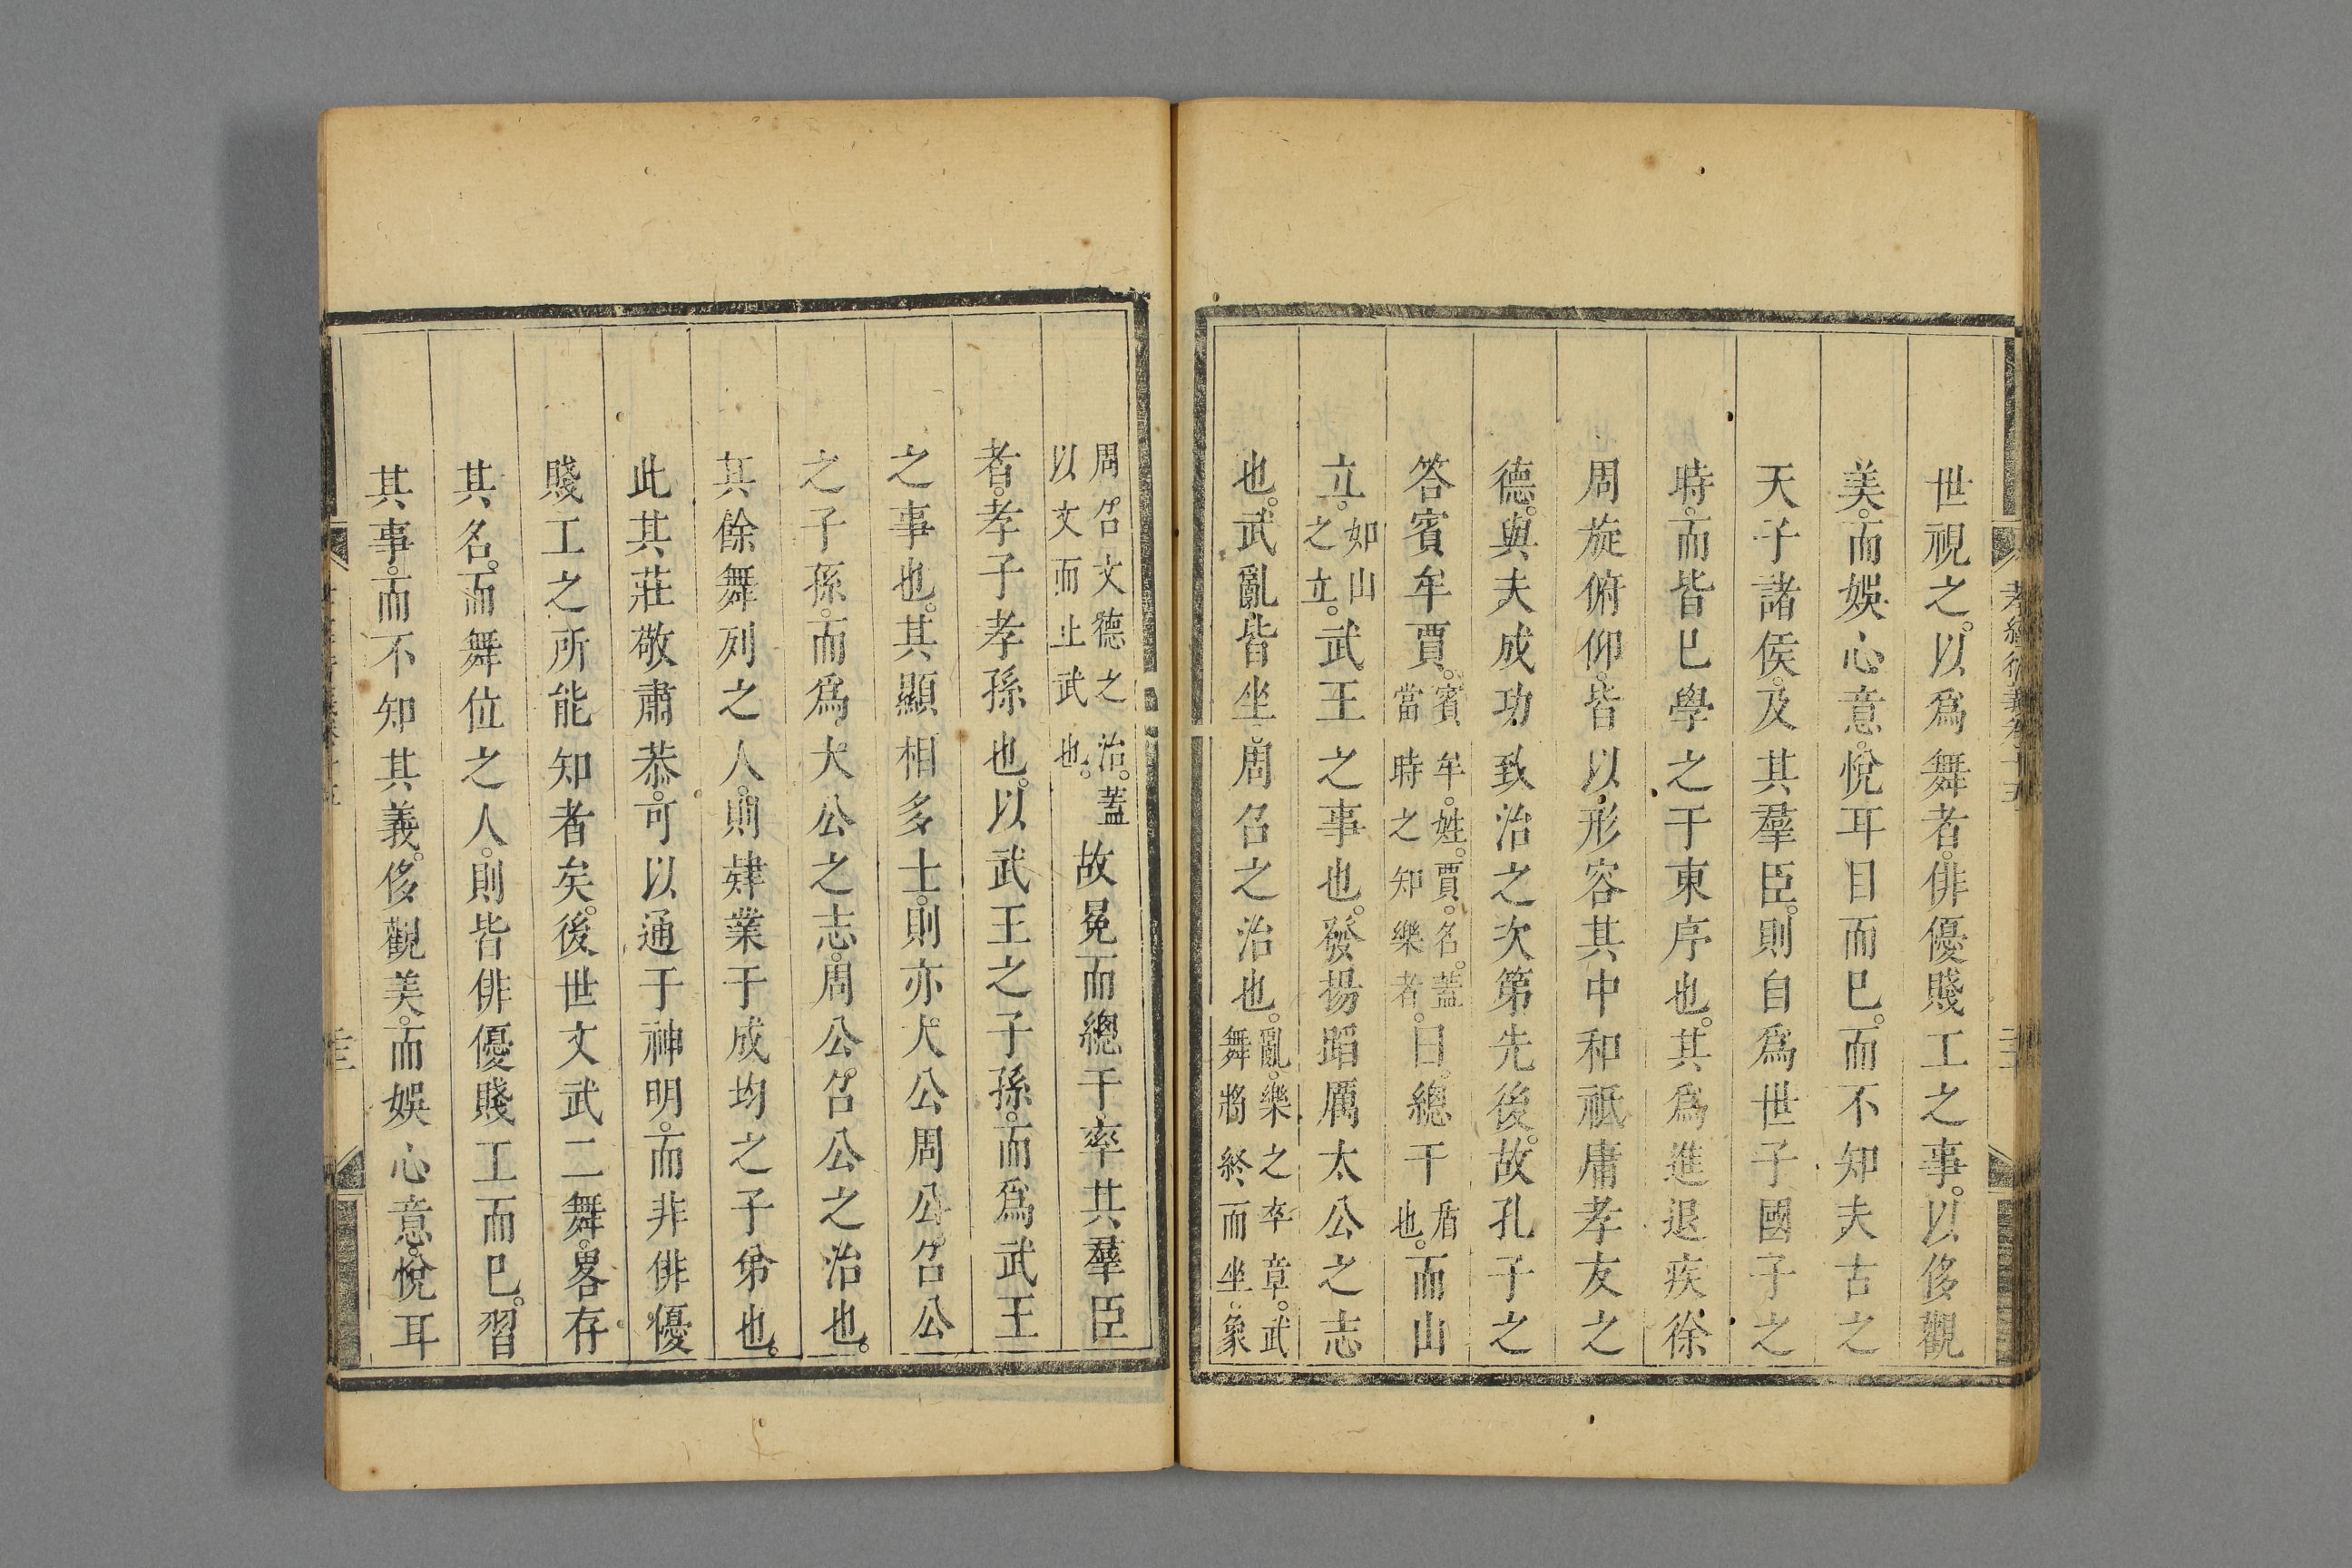 世視之。以爲舞者。俳優賤工之事。以侈觀
美。而娛心意。悅耳目而已。而不知夫古之
天子諸侯。及其羣臣。則自爲世子國子之
時。而皆已學之于東序也。其爲進退疾徐
周旋俯仰。皆以形容其中和祗庸孝友之
德。與夫成功致治之次第先後。故孔子之
答賓牟賈。賓牟。姓。賈。名。蓋當時之知樂者。曰。總干盾也。而山
立。如山之立。武王之事也。發揚蹈厲太公之志
也。武亂皆坐。周召之治也。亂。樂之卒章。武舞將終而坐。象
周召文德之治。蓋以文而止武也。故冕而總干。率其羣臣
者。孝子孝孫也。以武王之子孫。而爲武王
之事也。其顯相多士。則亦太公周公。召公
之子孫。而爲太公之志。周公。召公之治也。
其餘舞列之人。則肄業于成均之子弟也。
此其莊敬肅恭。可以通于神明。而非俳優
賤工之所能知者矣。後世文武二舞。畧存
其名。而舞位之人。則皆俳優賤工而已。習
其事。而不知其義。侈觀美。而娛心意。悅耳